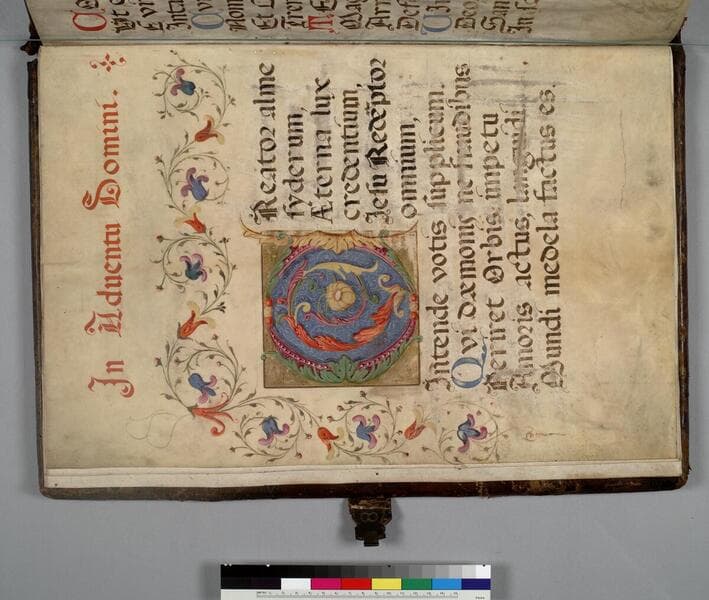 In Aduentu Domini.
CReator alme
syderum,
Æterna lux
credentium,
Iesu Redẽptor
omnium,
Intende votis supplicum.
Qvi dæmonis ne fraudibus
Periret Orbis, impetu
Amoris actus, languidi
Mundi medela factus es.